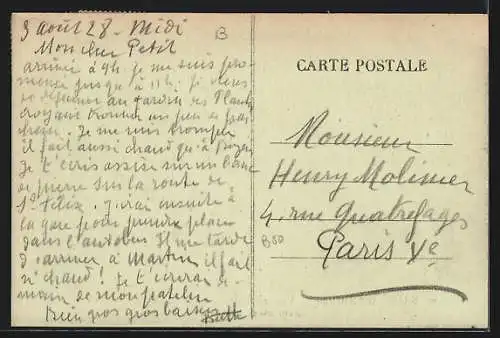 3 août 28 - Midi
Mon cher Petit
arrivée à 9h je me suis pro-
menée jusqu'à 11h. Je viens
de déjeuner au jardin des Plantes
croyant trouver un peu de
Je me suis trompée
il fait aussi chaud qu'à
Je t'écris assise sur un banc
de pierre sur la route de
St Félix. J'irai ensuite à
la gare pour prendre place
dans l'autobus. Il me tarde
d'arriver à il fait
si chaud! Je t'écrirai de-
main de
Bien gros gros baisers
B
CARTE POSTALE
Monsieur
Henry Molinier
4, rue Quatrefages
Paris Ve
B50